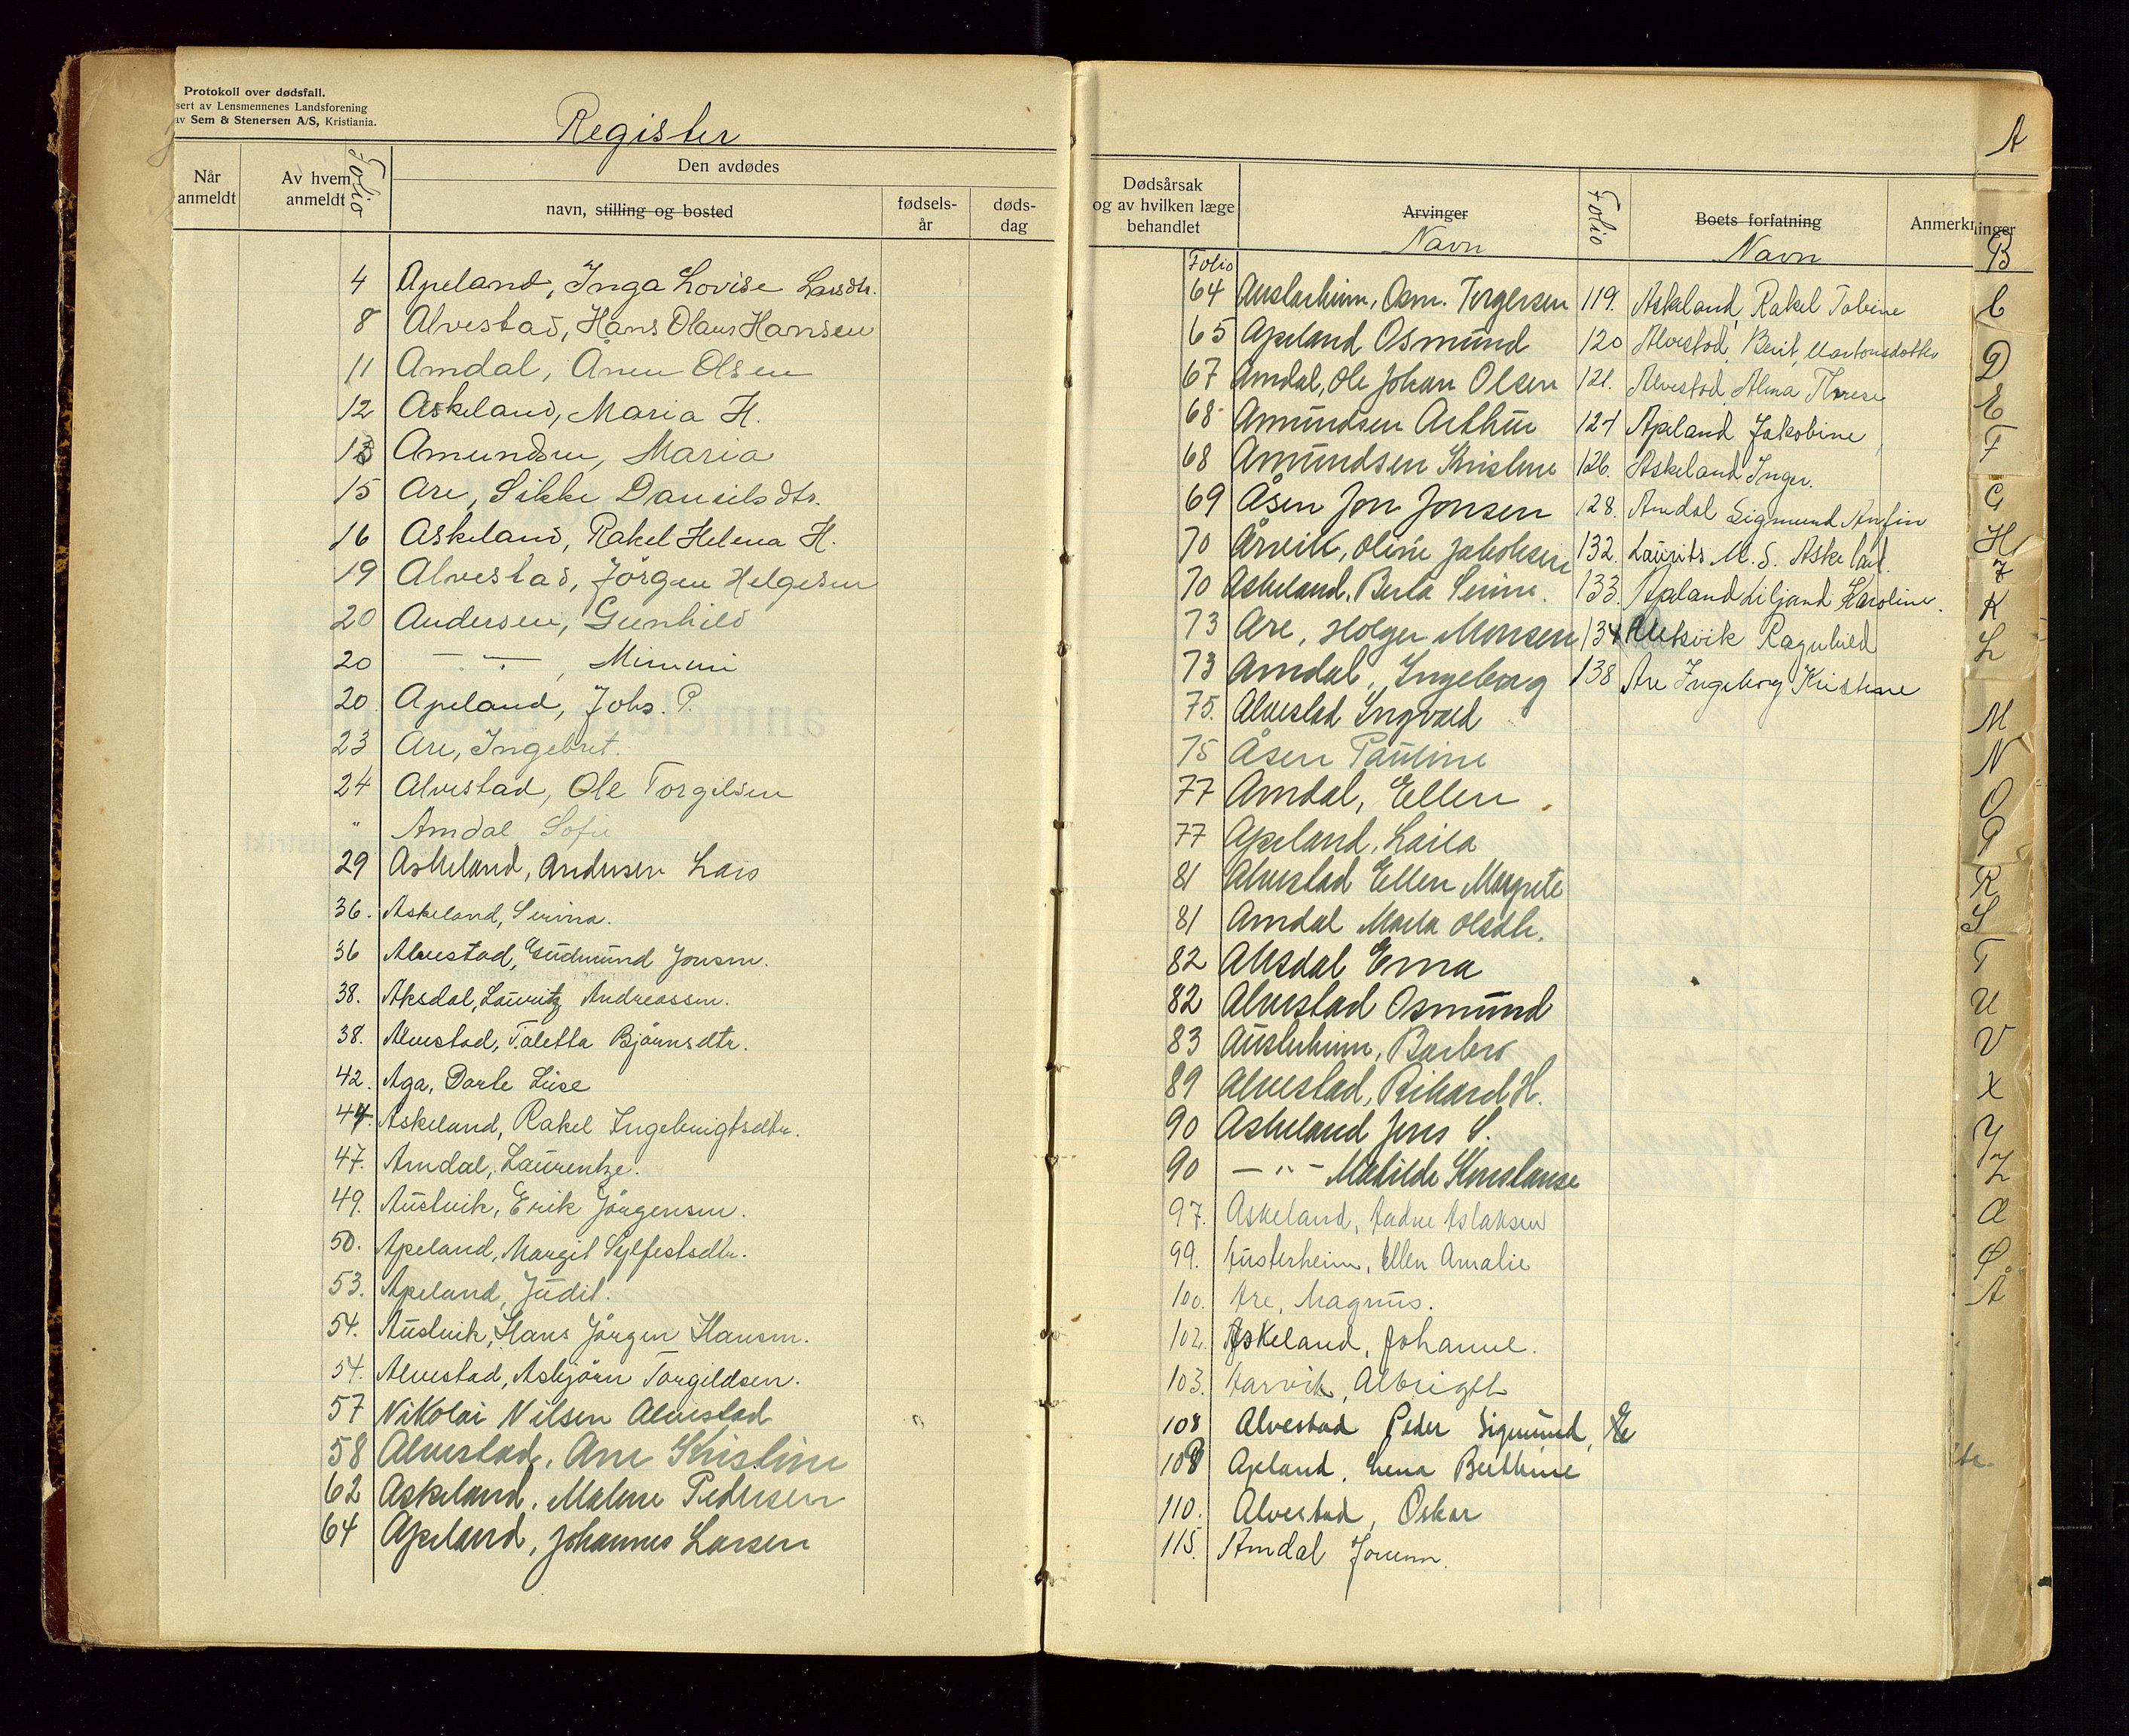 Protokoll over dødsfall.
sert av Lensmennenes Landsforening
av Sem & Stenersen A/S, Kristiania.
Register
Når anmeldt
Av hvem anmeldt
Folio
Den avdødes
navn, stilling og bosted
fødsels-år
døds-dag
4 Apeland, Inga Lovise Larsdtr.
8 Alvestad, Hans Olaus Hansen
11 Amdal, Ånen Olsen
12 Askeland, Maria H.
13 Amundsen, Maria
15 Are, Sikke Danielsdtr.
16 Askeland, Rakel Helena H.
19 Alvestad, Jörgen Helgesen
20 Andersen, Gunhild
20 — " —, Mimmi
20 Apeland, Johs. P.
23 Are, Ingebret.
24 Alvestad, Ole Torgilsen
" Amdal Sofie
29 Askeland, Andersen Lars
36. Askeland, Serina.
36 Alvestad, Gudmund Jonsen.
38. Aksdal, Lauritz Andreassen.
38. Alvestad, Taletta Bjørnsdtr.
42. Aga, Dorte Lise
44. Askeland, Rakel Ingebrigtsdtr.
47. Amdal, Laurentze.
49. Austvik, Erik Jörgensen.
50. Apeland, Margit Sylfestsdtr.
53. Apeland, Judit.
54. Austvik, Hans Jörgen Hansen.
54. Alvestad, Asbjörn Torgildsen.
57 Nikolai Nilsen Alvestad
58 Alvestad, Ane Kristine
62 Askeland, Malene Pedersen
64 Apeland, Johannes Larsen
Dødsårsak og av hvilken læge behandlet
Arvinger
Navn
Folio
Boets forfatning
Navn
Anmerkninger
Folio
64 Austerheim, Osm. Torgersen
65 Apeland Osmund
67 Amdal, Ole Johan Olsen
68 Amundsen Arthur
68 Amundsen Kristine
69 Åsen Jon Jonsen
70 Årvik, Oline Jakobsen
70 Askeland, Berta Serine.
73 Are, Holger Monsen
73 Amdal, Ingeborg
75. Alvestad Ingvald
75 Åsen Pauline
77 Amdal, Ellen
77 Apeland, Laila
81 Alvestad Ellen Margrete
81 Amdal Marta Olsdtr.
82 Aksdal Erna
82 Alvestad Osmund
83 Austerheim, Barbro
89 Alvestad, Rikard H.
90 Askeland Jens S.
90 — " — Matilde Konstanse
97. Askeland, Aadne Aslaksen
99. Austerheim, Ellen Amalie
100. Are, Magnus.
102. Askeland, Johanne.
103. Aarvik, Albrigth
108 Alvestad Peder Sigmund,
108 Apland, Lena Berthine
110. Alvestad, Oskar
115. Amdal
119. Askeland, Rakel Tobine
120 Alvestad, Berit Martonsdotter
121. Alvestad, Alma Therese
124 Apeland Jakobine
126. Askeland Inger.
128. Amdal Sigmund Anfin
132. Laurits M. S. Askeland.
133. Apeland Liljand Karoline.
134 Ragnhild
138 Are Ingeborg Kristine
A
B
C
D
E
F
G
H
I
K
L
M
N
O
P
R
S
T
U
V
X
Y
Z
Æ
Ø
Å